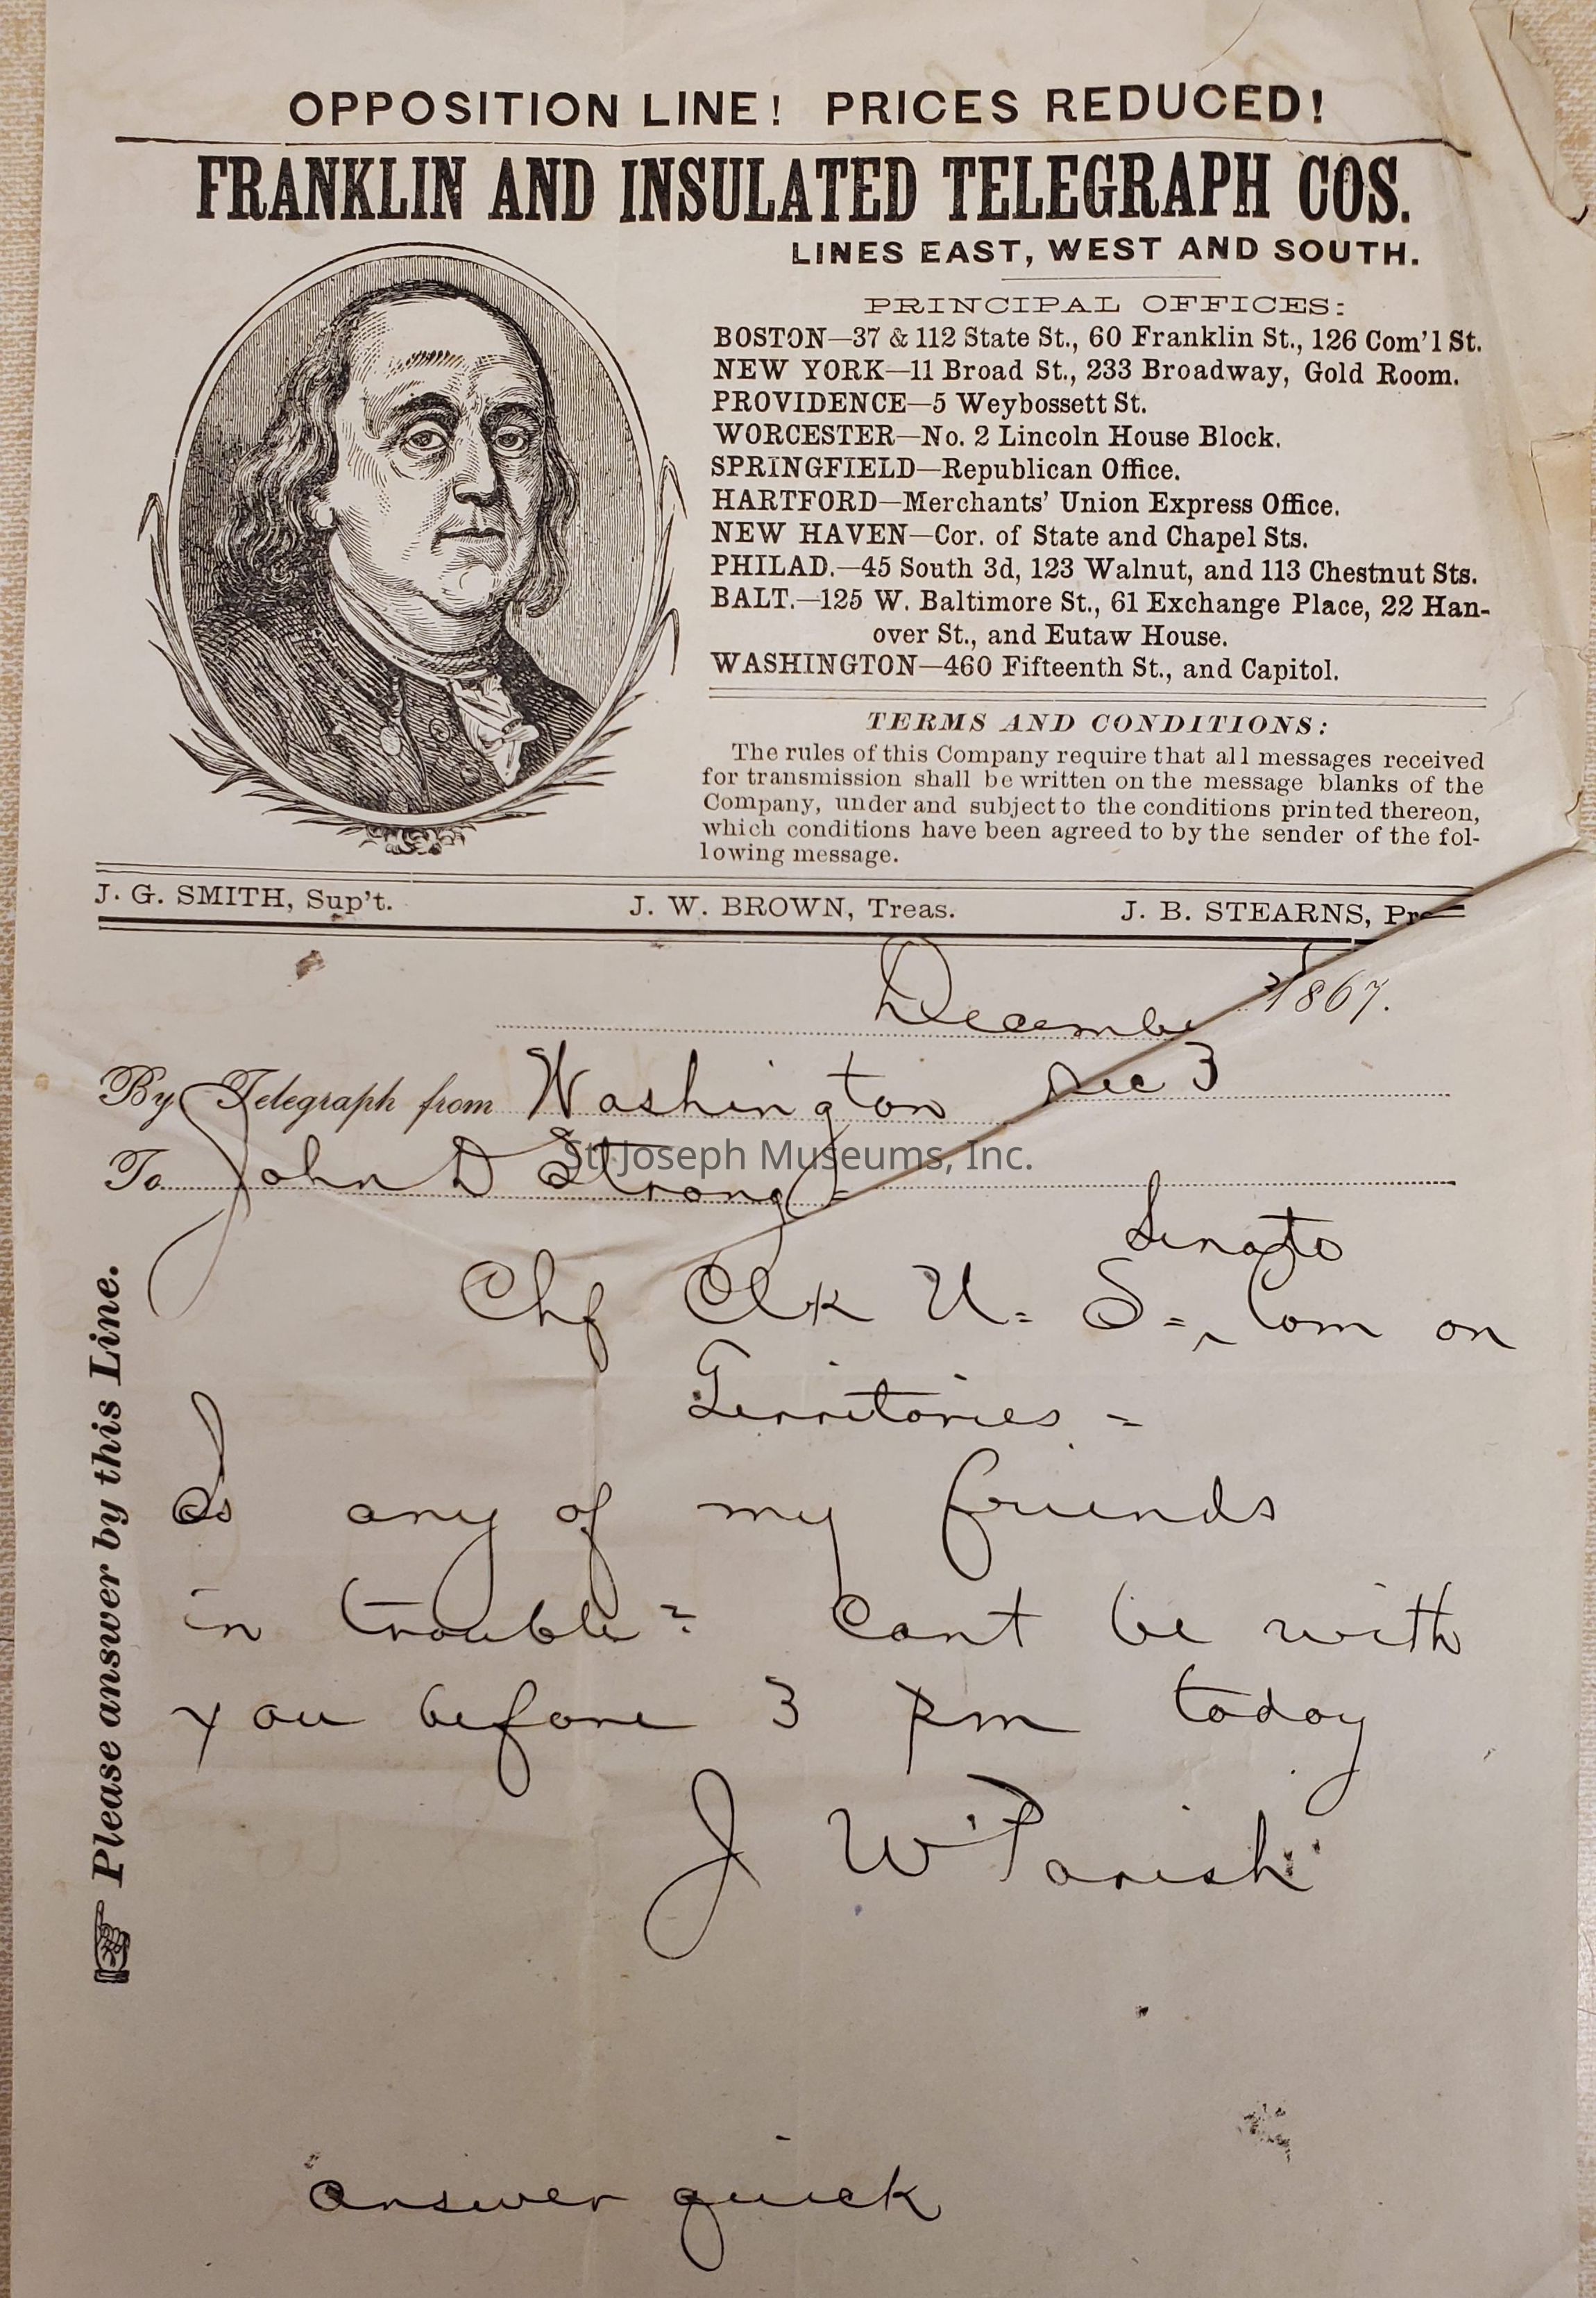 OPPOSITION LINE! PRICES REDUCED!
FRANKLIN AND INSULATED TELEGRAPH COS.
LINES EAST, WEST AND SOUTH.
PRINCIPAL OFFICES:
BOSTON—37 & 112 State St., 60 Franklin St., 126 Com'l St.
NEW YORK—11 Broad St., 233 Broadway, Gold Room.
PROVIDENCE—5 Weybossett St.
WORCESTER—No. 2 Lincoln House Block.
SPRINGFIELD—Republican Office.
HARTFORD—Merchants' Union Express Office.
NEW HAVEN—Cor. of State and Chapel Sts.
PHILAD.—45 South 3d, 123 Walnut, and 113 Chestnut Sts.
BALT.—125 W. Baltimore St., 61 Exchange Place, 22 Han-
over St., and Eutaw House.
WASHINGTON—460 Fifteenth St., and Capitol.
TERMS AND CONDITIONS:
The rules of this Company require that all messages received
for transmission shall be written on the message blanks of the
Company, under and subject to the conditions printed thereon,
which conditions have been agreed to by the sender of the fol-
lowing message.
J. G. SMITH, Sup't. J. W. BROWN, Treas. J. B. STEARNS,
December 1867.
By Telegraph from Washington Dec 3
To John D Strong =
St. Joseph Museums, Inc.
Senate
Chf Clk U. S. ‸ Com on
Territories =
Is any of my friends
in trouble? Cant be with
you before 3 pm today
J W Parish
answer quick
Please answer by this Line.